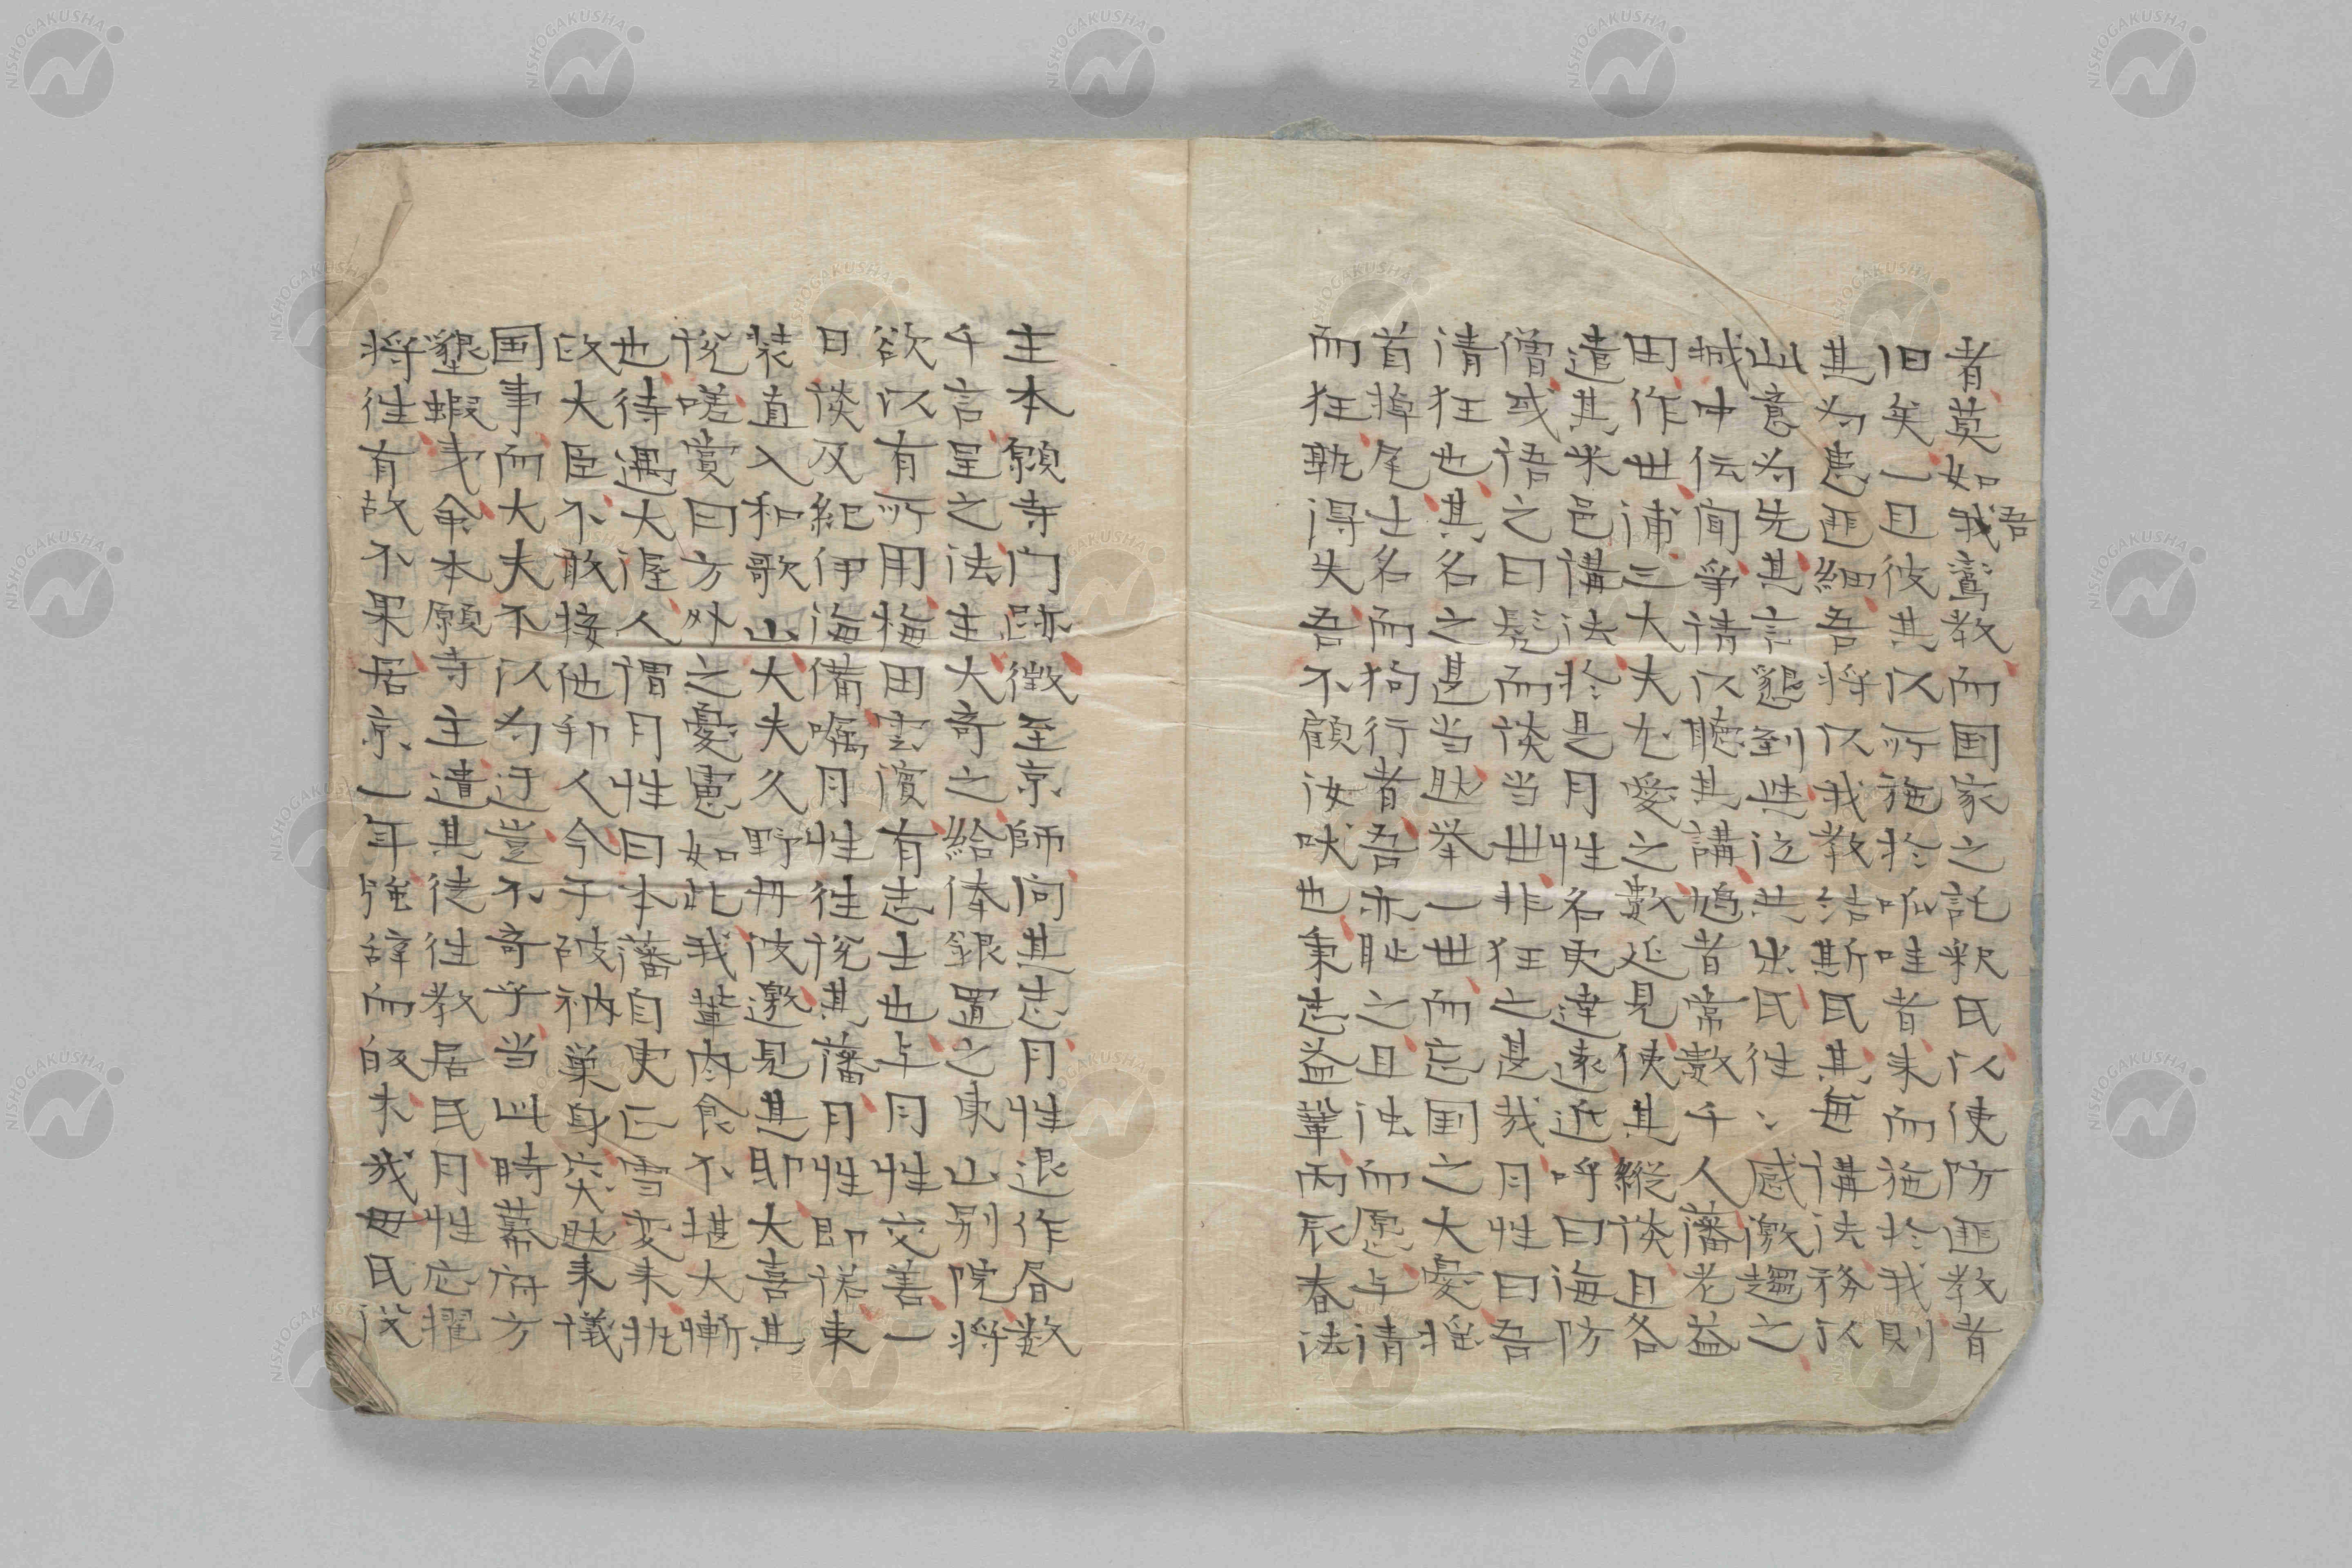 者莫如我鸞教而国家之託釈氏以使防匪教者
吾
旧矣一旦彼其以所施於呱哇者来而施於我則
其為患匪細吾将以我教結斯民其毎講法務以
此意為先其言懇到悲泣共出民往〻感激趨之
城中伝聞争請以聴其講鳩者常数千人藩老益
田作世浦三大夫尤愛之数延見使其縦談且各
遣其米邑講法於是月性名更達遠近呼曰海防
僧或語之曰髡而談当世非狂之甚哉月性曰吾
清狂也其名之甚当然挙一世而忘国之大憂揺
首掉尾士名而狗行者吾亦恥之且怯而愿与清
而狂孰得失吾不顧汝吠也秉志益鞏丙辰春法
主本願寺門跡徴至京師問其志月性退作昼数
千言呈之法主大奇之給俸銀置之東山別院将
欲以有所用梅田雲濱有志士也与月性交善一
日談及紀伊海備嘱月性往説其藩月性即諾束
装直入和歌山大夫久野丹波邀見其即大喜其
説嗟賞曰方外之憂憲如此我輩肉食不堪大慚
也待遇大渥人謂月性曰本藩自吏亡雪変来執
政大臣不敢接他邦人今子破衲巣身突然来議
国事而大夫不以為迂豈不奇乎当此時幕府方
墾蝦夷命本願寺主遣其徒往教居民月性応擢
将往有故不果居京一年強辞而皈未幾母氏没